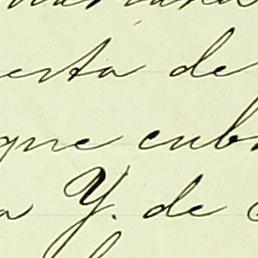 erta de
que cub
a Y. de